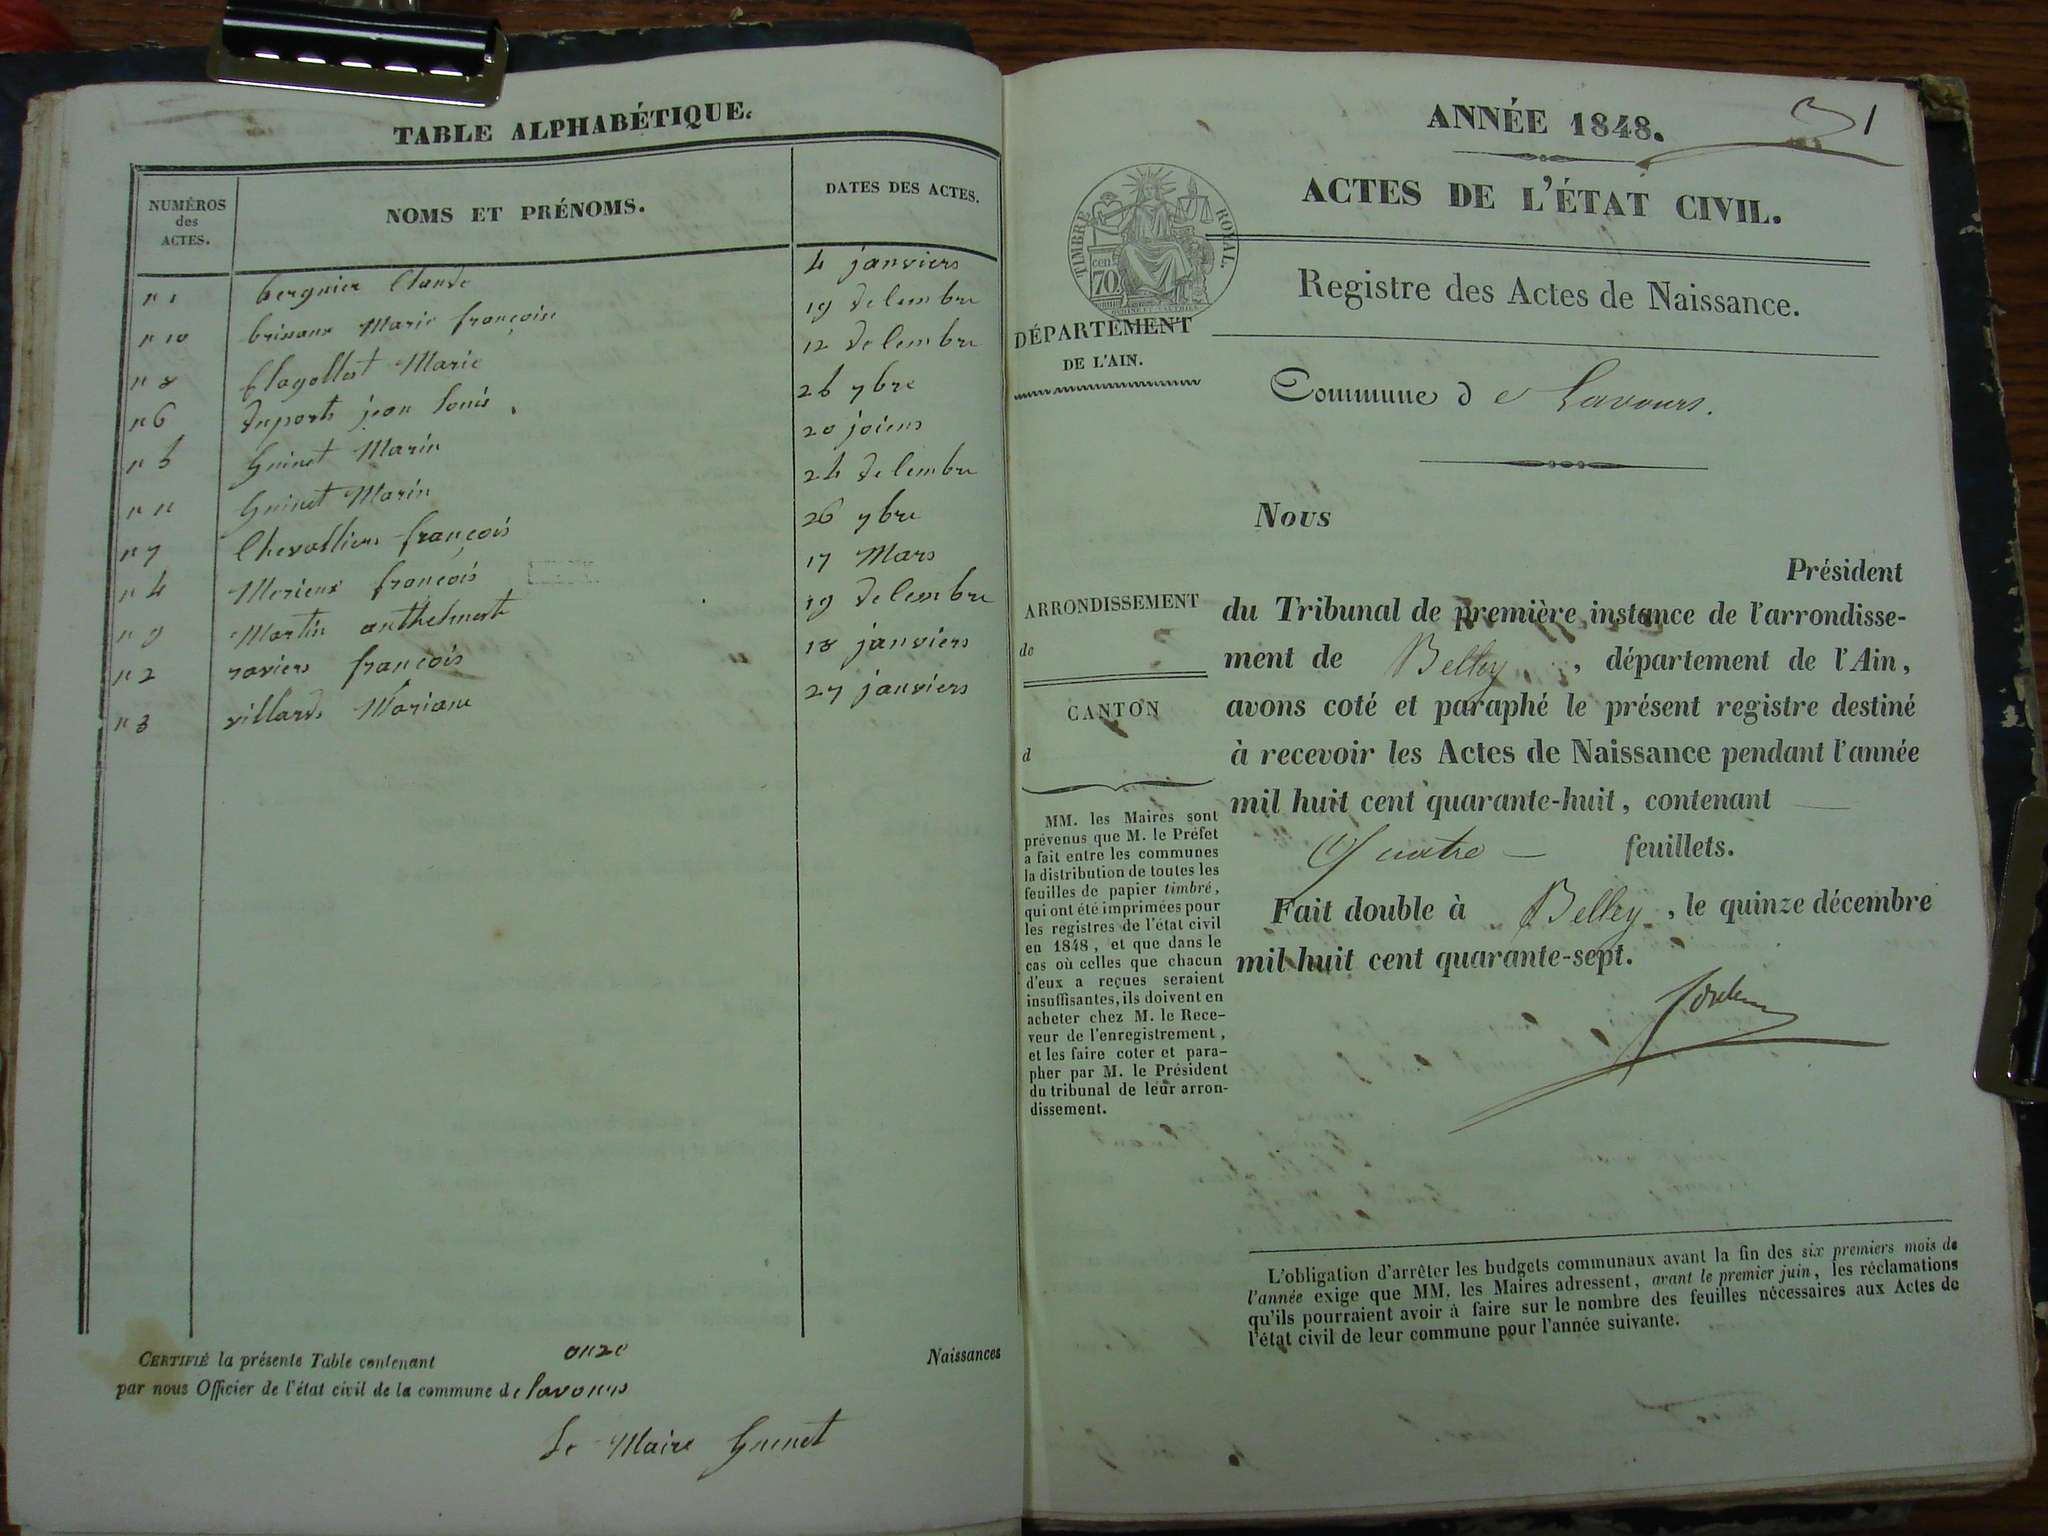 TABLE ALPHABÉTIQUE.
NUMÉROS
des
ACTES.
NOMS ET PRÉNOMS.
DATES DES ACTES.
n 1 bergnier Claude 4 janviers
n 10 Marie françoise 19 decembre
n 8 Clagollet Marie 12 decembre
n 6 duports jean louis 26 7bre
n 5 Guinet Marin 20
n 11 Guinet Marin 24 decembre
n 7 Chevalliers françois 26 7bre
n 4 Merieux françois 17 Mars
n 9 Martin anthelmert 19 decembre
n 2 raviers françois 18 janviers
n 3 villards Mariane 27 janviers
CERTIFIÉ la présente Table contenant onze Naissances
par nous Officier de l'état civil de la commune de lavours
Le Maire Guinet
ANNÉE 1848.
1
ACTES DE L'ÉTAT CIVIL.
TIMBRE ROYAL.
cen. 70
Registre des Actes de Naissance.
DÉPARTEMENT
DE L'AIN.
Commune de Lavours.
Nous
Président
ARRONDISSEMENT
de
CANTON
d
du Tribunal de première instance de l'arrondisse-
ment de Belley, département de l'Ain,
avons coté et paraphé le présent registre destiné
à recevoir les Actes de Naissance pendant l'année
mil huit cent quarante-huit, contenant
Quatre — feuillets.
Fait double à Belley, le quinze décembre
mil huit cent quarante-sept.
MM. les Maires sont
prévenus que M. le Préfet
a fait entre les communes
la distribution de toutes les
feuilles de papier timbré,
qui ont été imprimées pour
les registres de l'état civil
en 1848, et que dans le
cas où celles que chacun
d'eux a reçues seraient
insuffisantes, ils doivent en
acheter chez M. le Rece-
veur de l'enregistrement,
et les faire coter et para-
pher par M. le Président
du tribunal de leur arron-
dissement.
L'obligation d'arrêter les budgets communaux avant la fin des six premiers mois de
l'année exige que MM. les Maires adressent, avant le premier juin, les réclamations
qu'ils pourraient avoir à faire sur le nombre des feuilles nécessaires aux Actes de
l'état civil de leur commune pour l'année suivante.